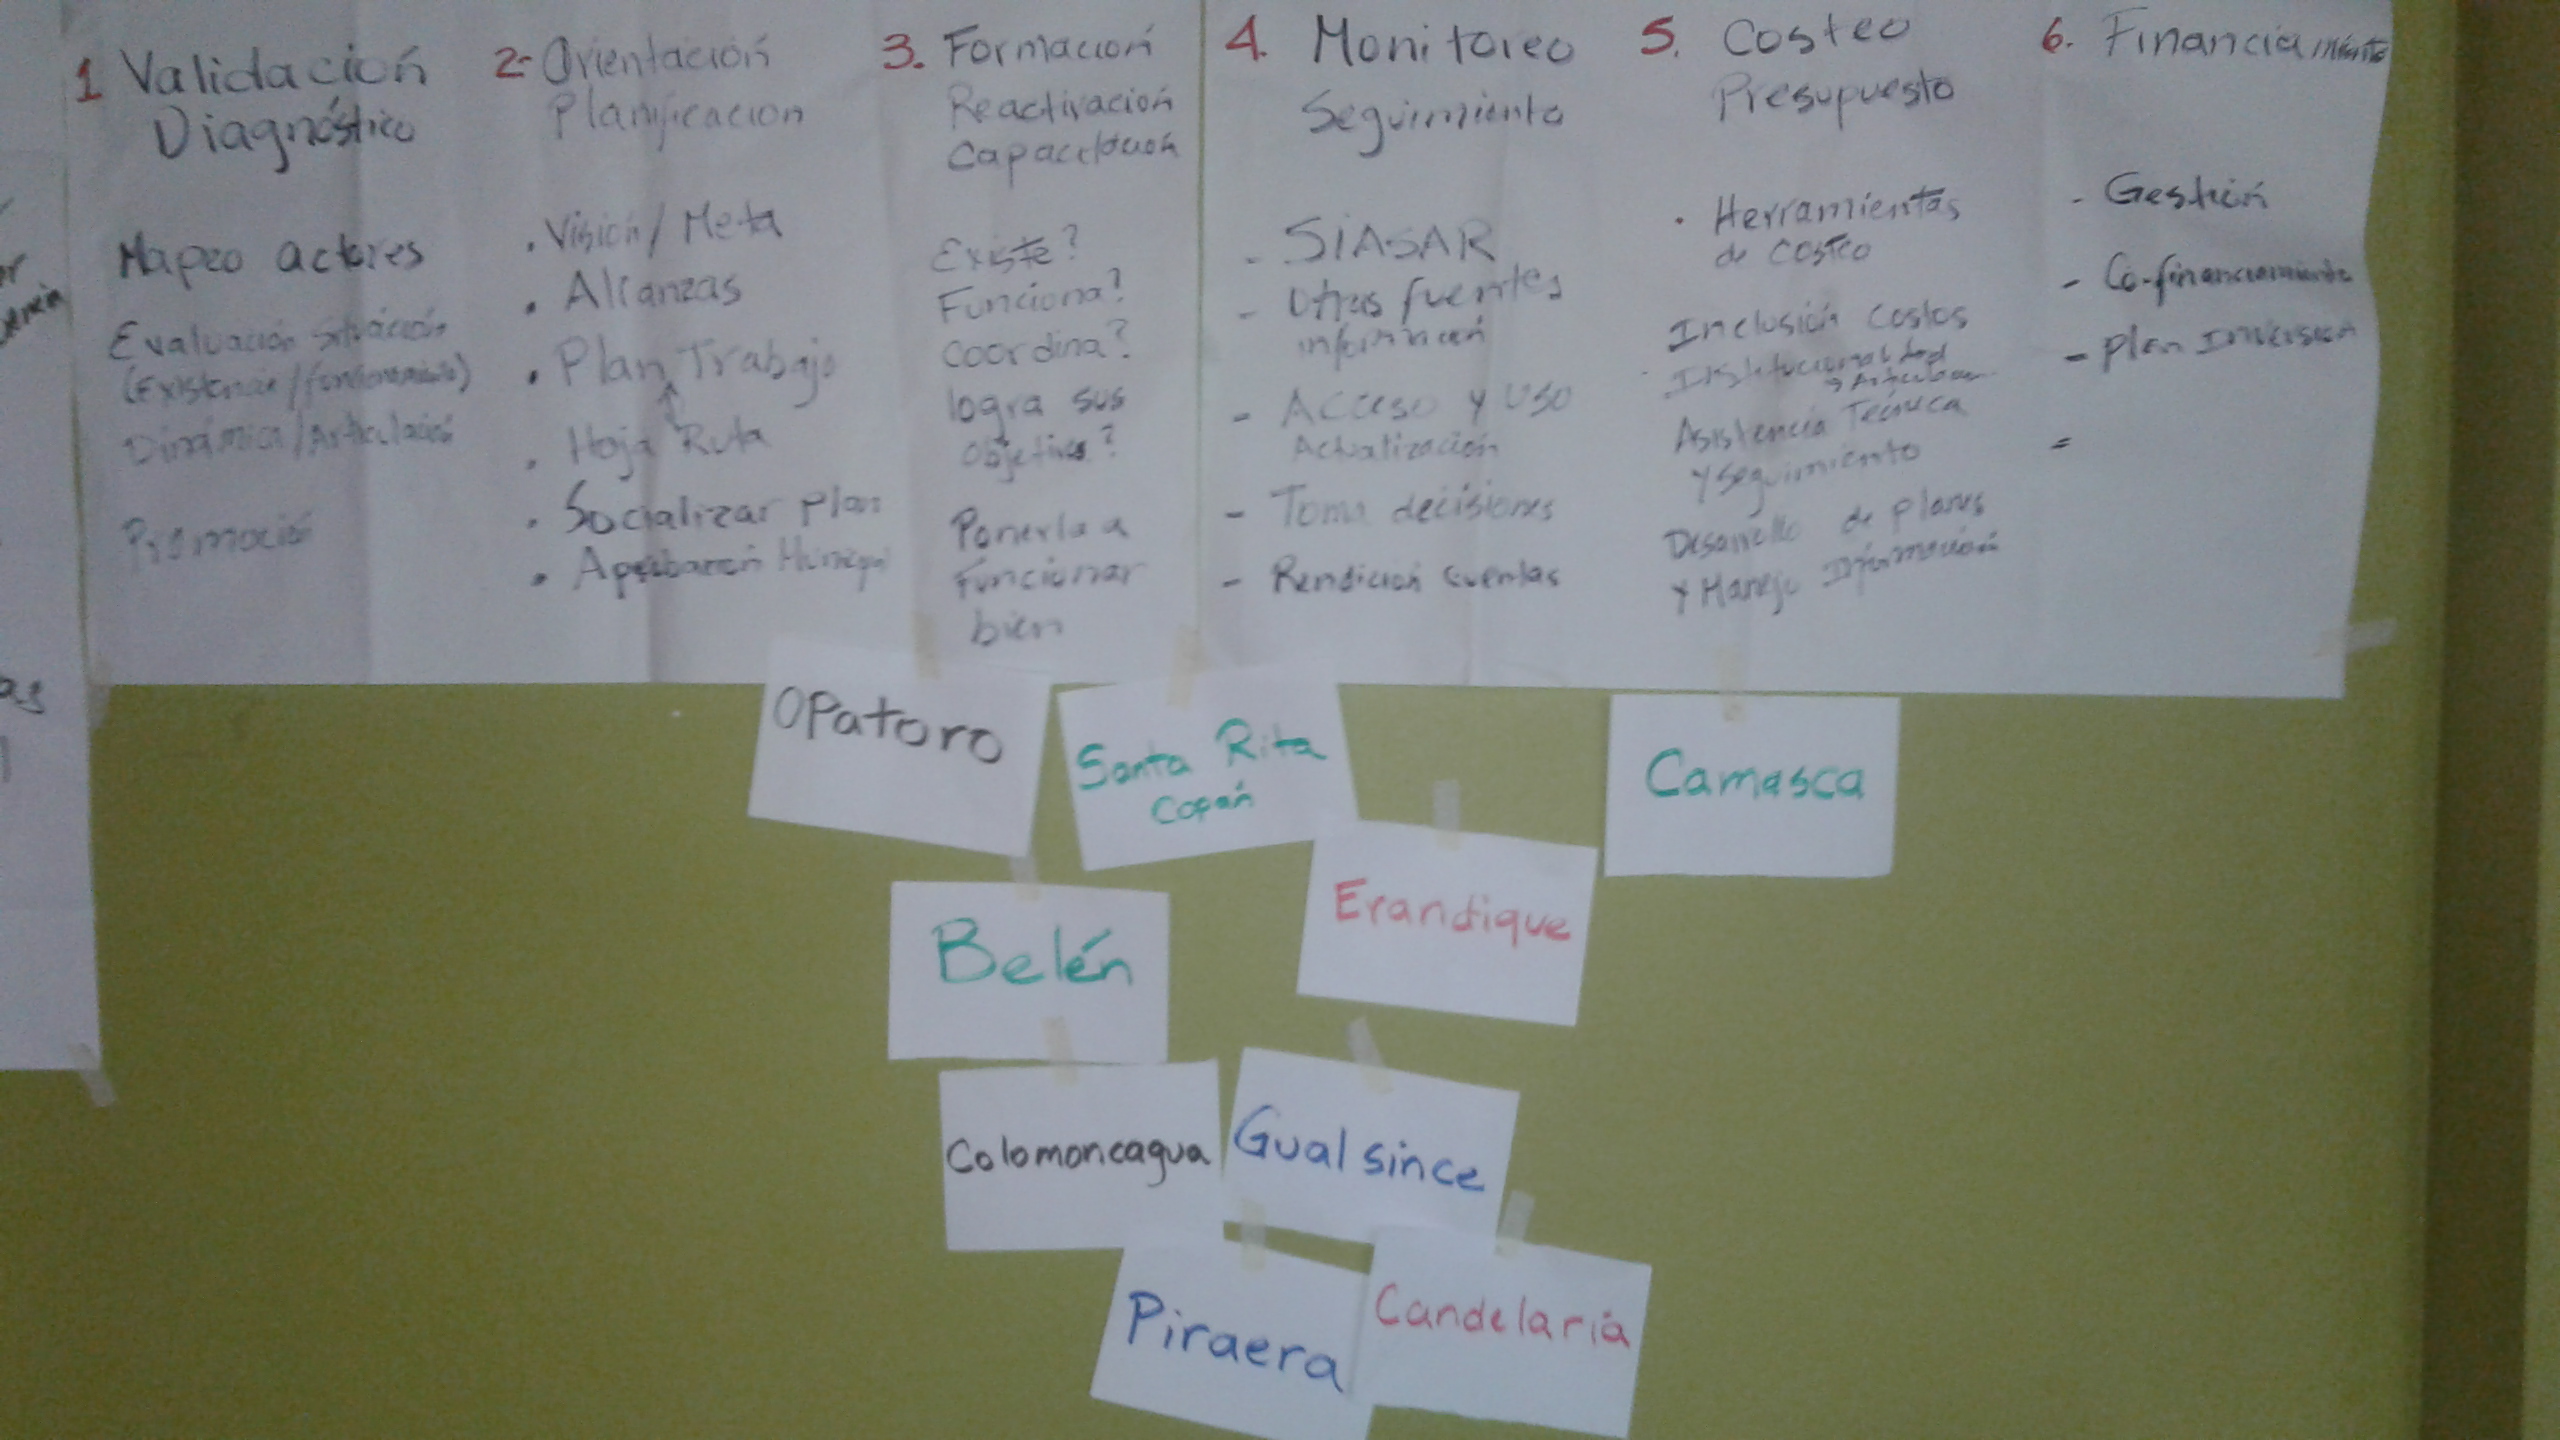 1 Validación
Diagnóstico
Mapeo actores
Evaluación situación
(Existencia/funcionamiento)
Dinámica/Articulación
Promoción
2- Orientación
Planificacion
. Visión/Meta
. Alianzas
. Plan Trabajo
. Hoja Ruta
. Socializar Plan
. Aprobación
3. Formación
Reactivación
Capacitación
Existe?
Funciona?
Coordina?
logra sus
Objetivos?
Ponerla a
Funcionar
bien
4. Monitoreo
Seguimiento
- SIASAR
- Otras fuentes
información
- Acceso y uso
Actualización
- Toma decisiones
- Rendición cuentas
5. Costeo
Presupuesto
. Herramientas
de costeo
Inclusión costos
Institucionalidad
Asistencia Técnica
y seguimiento
Desarrollo de planes
y Manejo Información
6. Financiamiento
- Gestión
- Co-financiamiento
- Plan Inversión
-
as
Opatoro
Santa Rita
Copán
Camasca
Erandique
Belén
Colomoncagua
Gualsince
Piraera
Candelaria